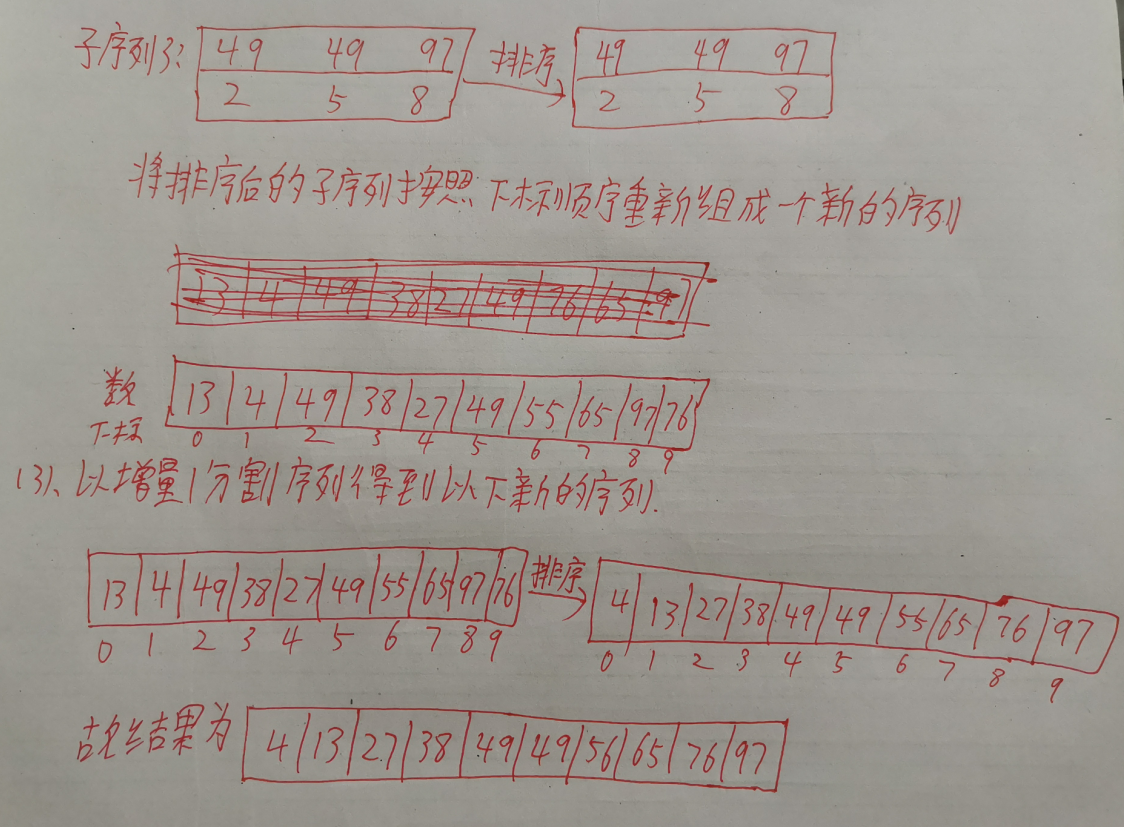 子序列3: 49 49 97 排序 49 49 97
2 5 8 2 5 8
将排序后的子序列按照下标顺序重新组成一个新的序列
13 4 49 38 27 49 76 65 97
数 13 4 49 38 27 49 55 65 97 76
下标 0 1 2 3 4 5 6 7 8 9
(3)、以增量1分割序列得到以下新的序列.
13 4 49 38 27 49 55 65 97 76 排序 4 13 27 38 49 49 55 65 76 97
0 1 2 3 4 5 6 7 8 9 0 1 2 3 4 5 6 7 8 9
故结果为 4 13 27 38 49 49 56 65 76 97